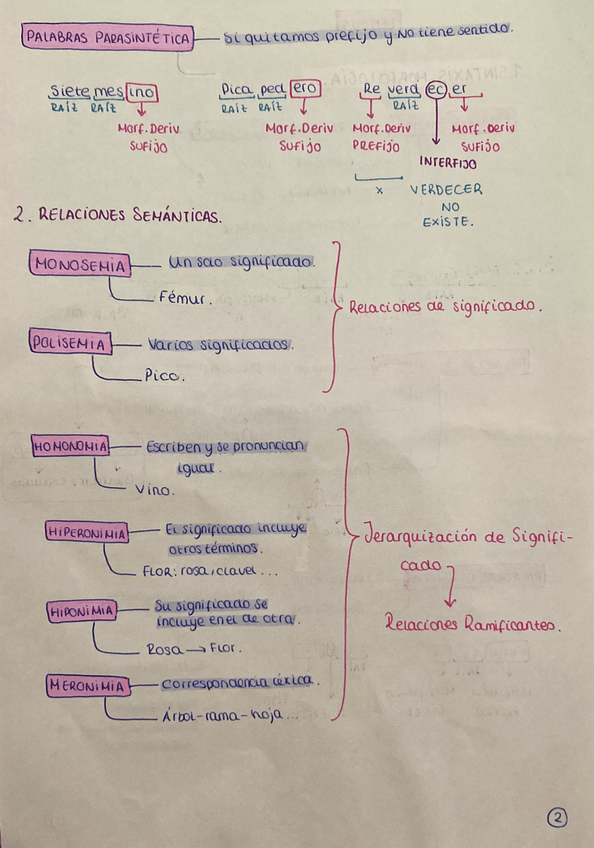 PALABRAS PARASINTÉTICA — Si quitamos prefijo y No tiene sentido.
Siete mes ino
RAÍZ RAÍZ
Morf. Deriv
SUFIJO
Pica ped ero
RAÍZ RAÍZ
Morf. Deriv
SUFIJO
Re verd ec er
RAÍZ
Morf. Deriv
PREFIJO
INTERFIJO
Morf. Deriv
SUFIJO
x VERDECER
NO
EXISTE.
2. RELACIONES SEMÁNTICAS.
MONOSEMIA — Un solo significado.
Fémur.
POLISEMIA — Varios significados.
Pico.
Relaciones de significado.
HOMONOMIA — Escriben y se pronuncian
igual.
Vino.
HIPERONIMIA — El significado incluye
otros términos.
FLOR: rosa, clavel...
HIPONIMIA — Su significado se
incluye en el de otra.
Rosa → Flor.
MERONIMIA — Correspondencia léxica.
Árbol-rama-hoja...
Jerarquización de Signifi-
cado
Relaciones Ramificantes.
2